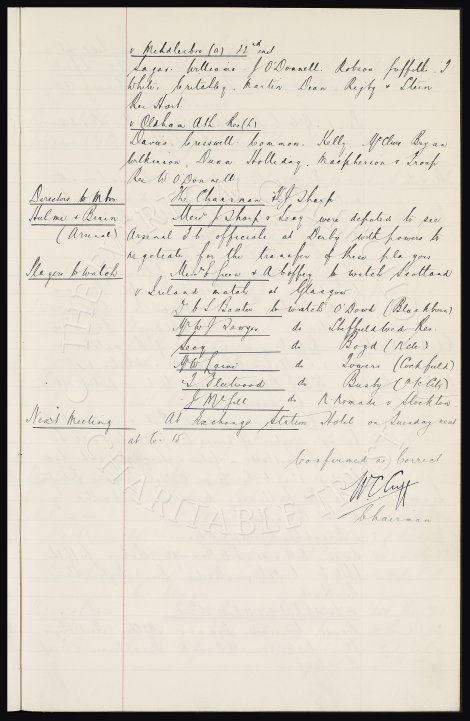 v. Middlesbro (a) 22nd inst
Sagar. Williams J O'Donnell. Robson Griffiths. J
White. Critchley. Martin Dean Rigby & Stein
Res Hart
v Oldham Ath. Res (h)
Davies. Cresswell Common. Kelly. McClure Bryan
Wilkinson. Dunn Holliday. Macpherson & Troup
Res W O'Donnell
Directors to Mtn.
The Chairman & J Sharp
Hulme & Brain
(Arsenal)
Messrs J Sharp & Secy were deputed to see
Arsenal F.C. officials at Derby with powers to
negotiate for the transfer of these players
Players to watch
Messrs Green & A Coffey to watch Scotland
v Ireland match at Glasgow
Dr C S Baxter to watch O'Dowd (Blackburn)
Mr W J Sawyer do Sheffield Wed Res.
Secy do Boyd
Mr W do Towers (Cockfield)
T Fleetwood do Busby (M. City)
J McGill do R. Nomads v Stockton
Next Meeting
At Exchange Station Hotel on Tuesday next
at 6. 15
Confirmed as Correct
W.C. Cuff
Chairman
CHARITABLE TRUST